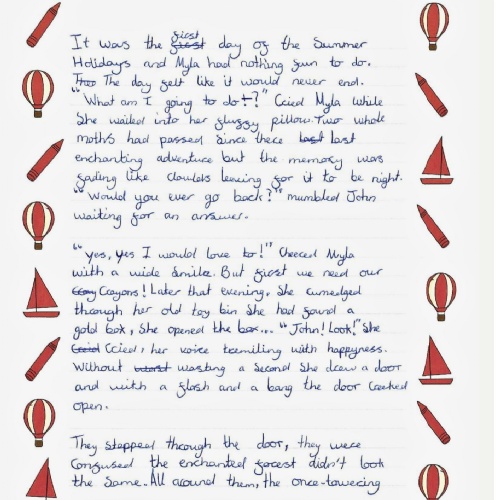 It was the first day of the Summer
Holidays and Myla had nothing fun to do.
The day felt like it would never end.
"What am I going to do!?" Cried Myla while
She wailed into her fluffy pillow. Two whole
moths had passed Since there last
enchanting adventure but the memory was
fading like clowds leaving for it to be night.
"Would you ever go back?" mumbled John
waiting for an answer.
"yes, yes I would love to!" Cheered Myla
with a wide Smile. But first we need our
Crayons! Later that evening, She rumedged
through her old toy bin She had found a
gold box, She opened the box... "John! Look!" She
Cried, her voice tremiling with happyness.
Without wasting a Second She drew a door
and with a flash and a bang the door Creeked
open.
They stepped through the door, they were
Confused the enchanted forest didn't look
the Same. All around them, the once-towering